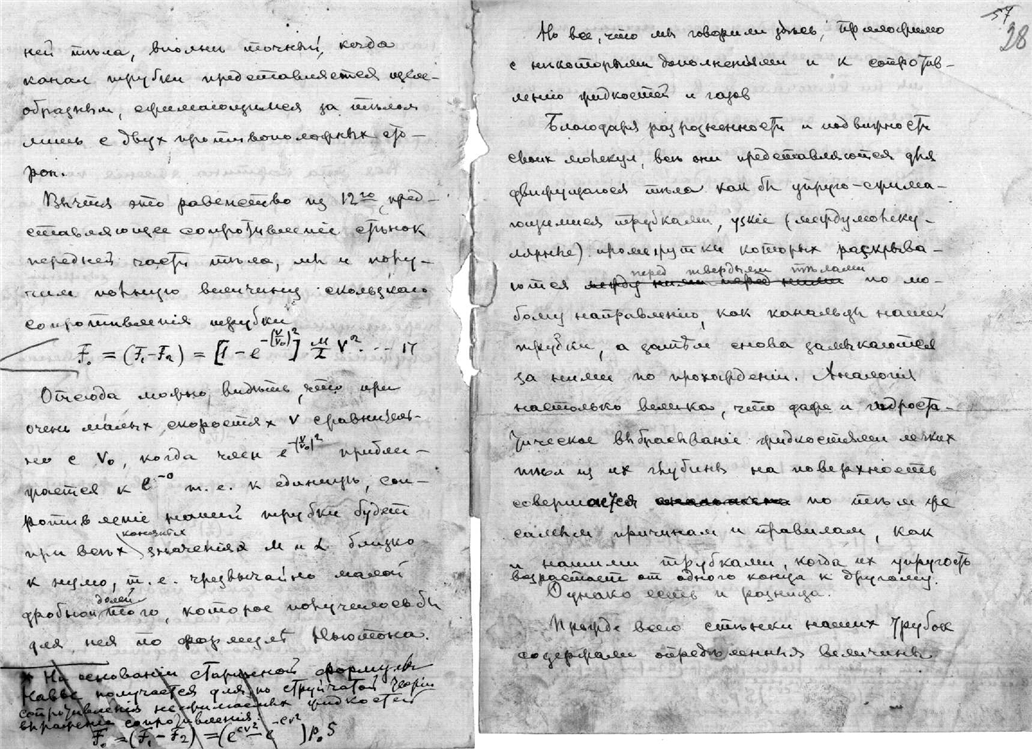 ней тѣла, вполнѣ точный, когда
канал трубки представляется щеле-
образным, сжимающимся за тѣлом
лишь с двух противоположных сто-
рон.
Вычтя это равенство из 12го, пред-
ставляющее сопротивленіе стѣнок
передней части тѣла, мы и полу-
чим полную величину скользкаго
сопротивленія трубки
F₀ = (F₁-F₂) = [1 - e^-(V/V₀)²] M/L V² ... 17
Отсюда можно видѣть, что при
очень малых скоростях V сравнитель-
но с V₀, когда член e^-(V/V₀)² прибли-
жается к e^-0 т. е. к единицѣ, соп-
ротивленіе нашей трубки будет
конечных
при всѣх значенія M и L близко
к нулю, т. е. чрезвычайно малой
долей
дробной того, которое получилось бы
для нея по формулѣ Ньютона.
* На основаніи старинной формулы
получается для по струйчатой теоріи
сопротивления несжимаемых жидкостей
выражение сопротивления:
F₀ = (F₁-F₂) = (e^cv² - e^-cv²) p₀ S
57
28
Но все, что мы говорили здѣсь, приложимо
с нѣкоторыми дополненіями и к сопротив-
ленію жидкостей и газов
Благодаря разрозненности и подвижности
своих молекул, всѣ они представляются для
движущагося тѣла как бы упруго-сжима-
ющимися трубками, узкіе (междумолеку-
лярные) промежутки которых раскрыва-
перед твердыми тѣлами
ются между ними перед ними по лю-
бому направленію, как каналы нашей
трубки, а затѣм снова замыкаются
за ними по прохожденіи. Аналогія
настолько велика, что даже и гидроста-
тическое выбрасываніе жидкостями легких
тѣл из их глубины на поверхность
совершается по тѣм же
самым причинам и правилам, как
и нашими трубками, когда их упругость
возрастает от одного конца к другому.
Однако есть и разница.
Прежде всего стѣнки наших трубок
содержали опредѣленныя величины